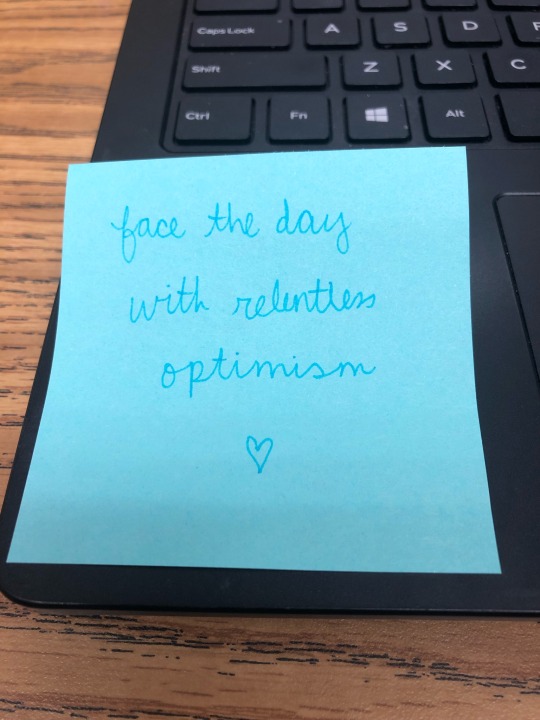 Caps Lock A S D F
Shift Z X C
Ctrl Fn Alt
face the day
with relentless
optimism